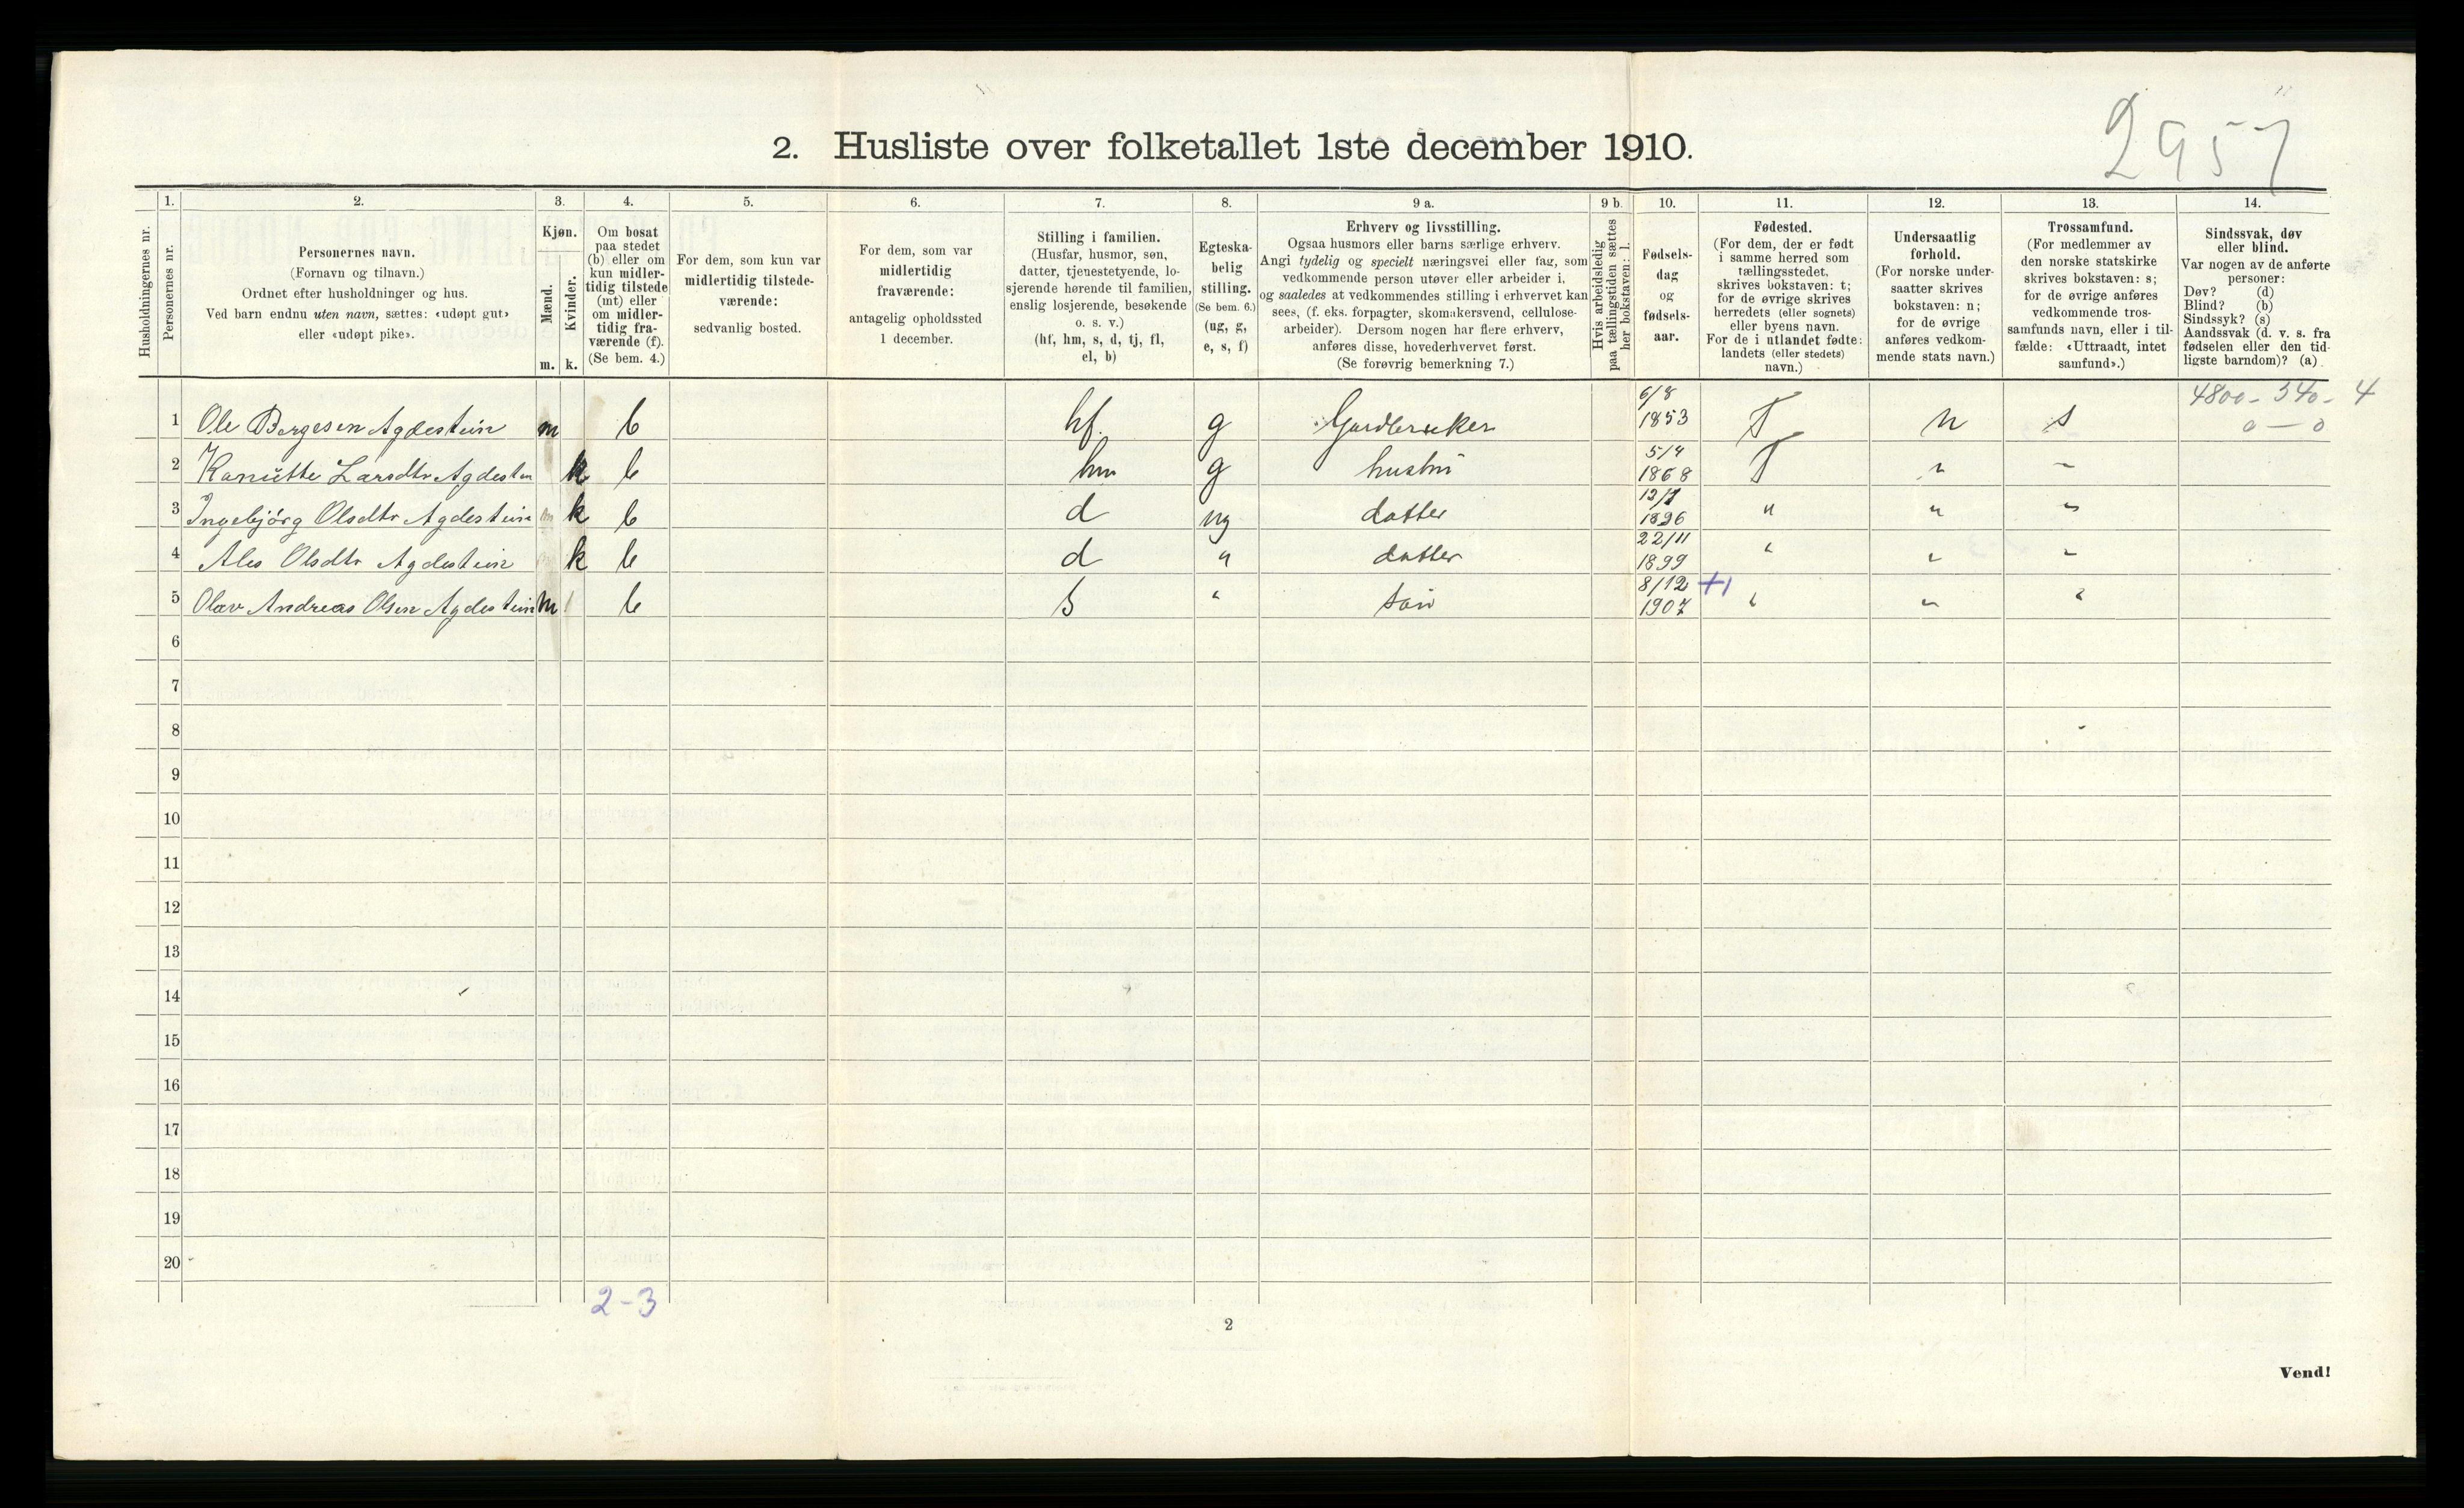 2957
2. Husliste over folketallet 1ste december 1910.
Husholdningernes nr.
1.
Personernes nr.
2.
Personernes navn.
(Fornavn og tilnavn.)
Ordnet efter husholdninger og hus.
Ved barn endnu uten navn, sættes: «udøpt gut»
eller «udøpt pike».
3.
Kjøn.
Mænd.
Kvinder.
m. k.
4.
Om bosat
paa stedet
(b) eller om
kun midler-
tidig tilstede
(mt) eller
om midler-
tidig fra-
værende (f).
(Se bem. 4.)
5.
For dem, som kun var
midlertidig tilstede-
værende:
sedvanlig bosted.
6.
For dem, som var
midlertidig
fraværende:
antagelig opholdssted
1 december.
7.
Stilling i familien.
(Husfar, husmor, søn,
datter, tjenestetyende, lo-
sjerende hørende til familien,
enslig losjerende, besøkende
o. s. v.)
(hf, hm, s, d, tj, fl,
el, b)
8.
Egteska-
belig
stilling.
(Se bem. 6.)
(ug, g,
e, s, f)
9 a.
Erhverv og livsstilling.
Ogsaa husmors eller barns særlige erhverv.
Angi tydelig og specielt næringsvei eller fag, som
vedkommende person utøver eller arbeider i,
og saaledes at vedkommendes stilling i erhvervet kan
sees, (f. eks. forpagter, skomakersvend, cellulose-
arbeider). Dersom nogen har flere erhverv,
anføres disse, hovederhvervet først.
(Se forøvrig bemerkning 7.)
9 b.
Hvis arbeidsledig
paa tællingstiden sættes
her bokstaven: l.
10.
Fødsels-
dag
og
fødsels-
aar.
11.
Fødested.
(For dem, der er født
i samme herred som
tællingsstedet,
skrives bokstaven: t;
for de øvrige skrives
herredets (eller sognets)
eller byens navn.
For de i utlandet fødte:
landets (eller stedets)
navn.)
12.
Undersaatlig
forhold.
(For norske under-
saatter skrives
bokstaven: n;
for de øvrige
anføres vedkom-
mende stats navn.)
13.
Trossamfund.
(For medlemmer av
den norske statskirke
skrives bokstaven: s;
for de øvrige anføres
vedkommende tros-
samfunds navn, eller i til-
fælde: «Uttraadt, intet
samfund».)
14.
Sindssvak, døv
eller blind.
Var nogen av de anførte
personer:
Døv? (d)
Blind? (b)
Sindssyk? (s)
Aandssvak (d. v. s. fra
fødselen eller den tid-
ligste barndom)? (a)
4800 - 340 - 4
0 - 0
1 Ole Bergesen Agdestein m b hf. g Gardbruker 6/8 1853 T n s
2 Kanutte Larsdtr Agdestein k b hm g hustru 5/4 1868 T " "
3 Ingebjørg Olsdtr Agdestein k b d ug datter 1896 " " "
4 Ales Olsdtr Agdestein k b d " datter 22/11 1899 " " "
5 Olav Andreas Olsen Agdestein m b s " søn 8/12 1907 +1 " " "
6
7
8
9
10
11
12
13
14
15
16
17
18
19
20
2-3
2
Vend!